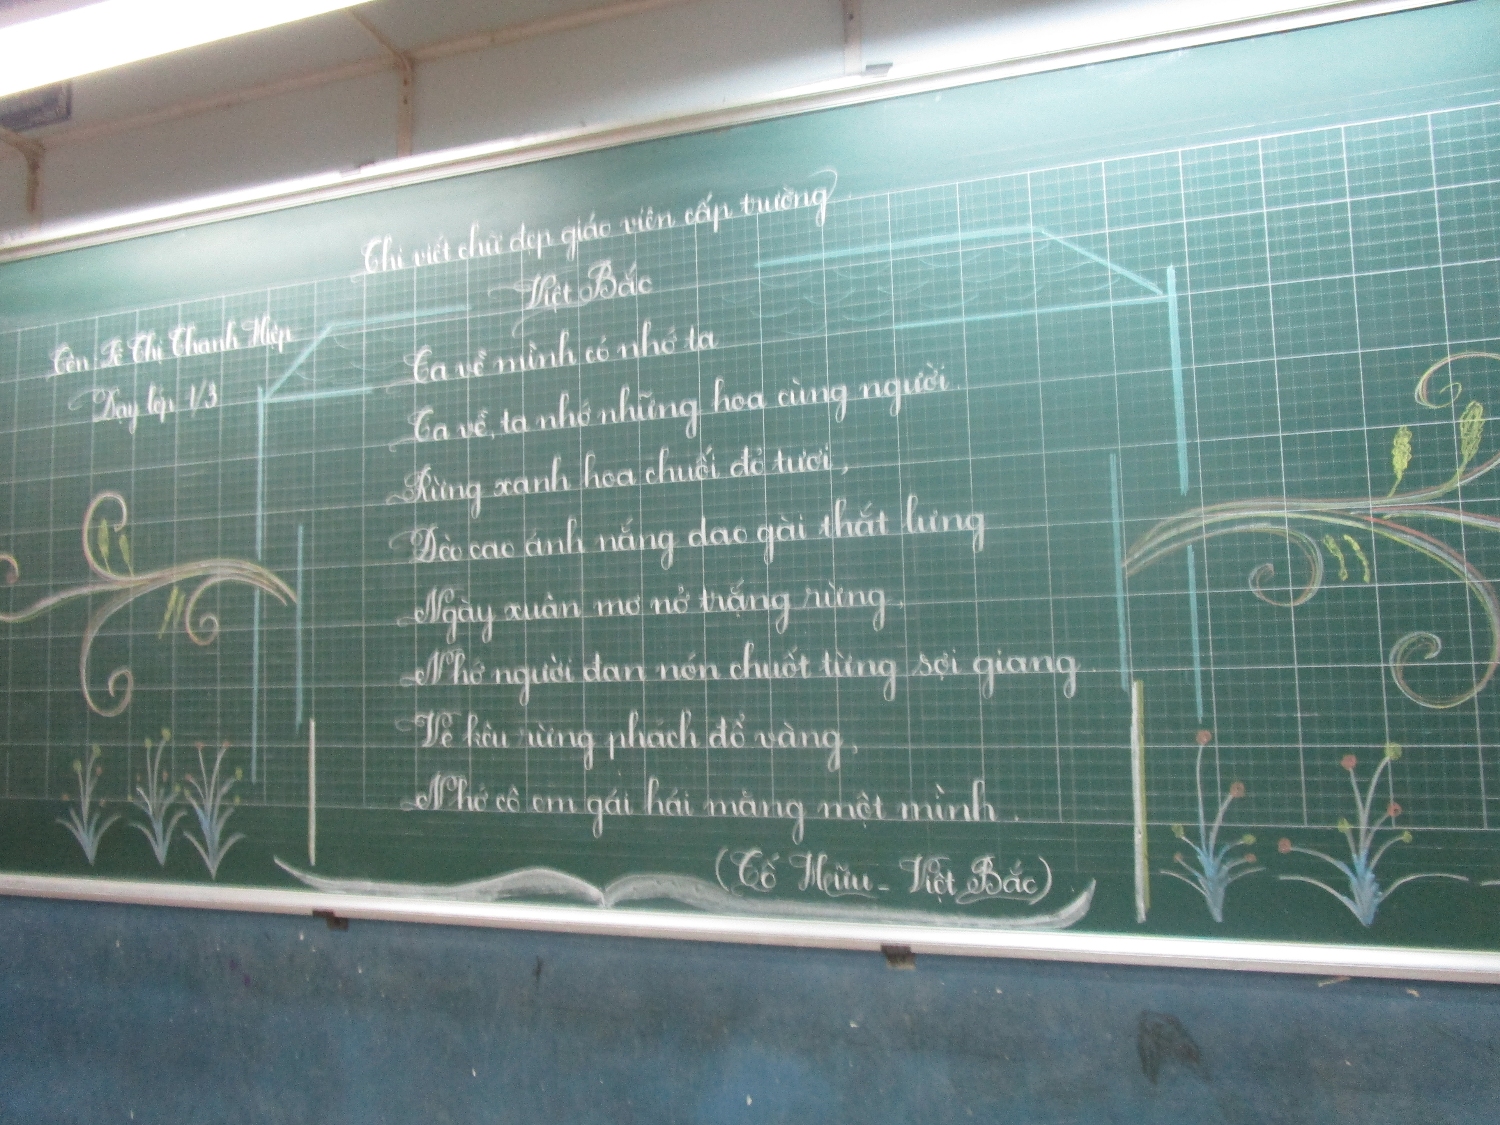 Thi viết chữ đẹp giáo viên cấp trường
Việt Bắc
Tên: Lê Thị Thanh Hiệp
Dạy lớp 1/3
Ta về mình có nhớ ta
Ta về, ta nhớ những hoa cùng người.
Rừng xanh hoa chuối đỏ tươi,
Đèo cao ánh nắng dao gài thắt lưng
Ngày xuân mơ nở trắng rừng,
Nhớ người đan nón chuốt từng sợi giang.
Ve kêu rừng phách đổ vàng,
Nhớ cô em gái hái măng một mình.
(Tố Hữu - Việt Bắc)